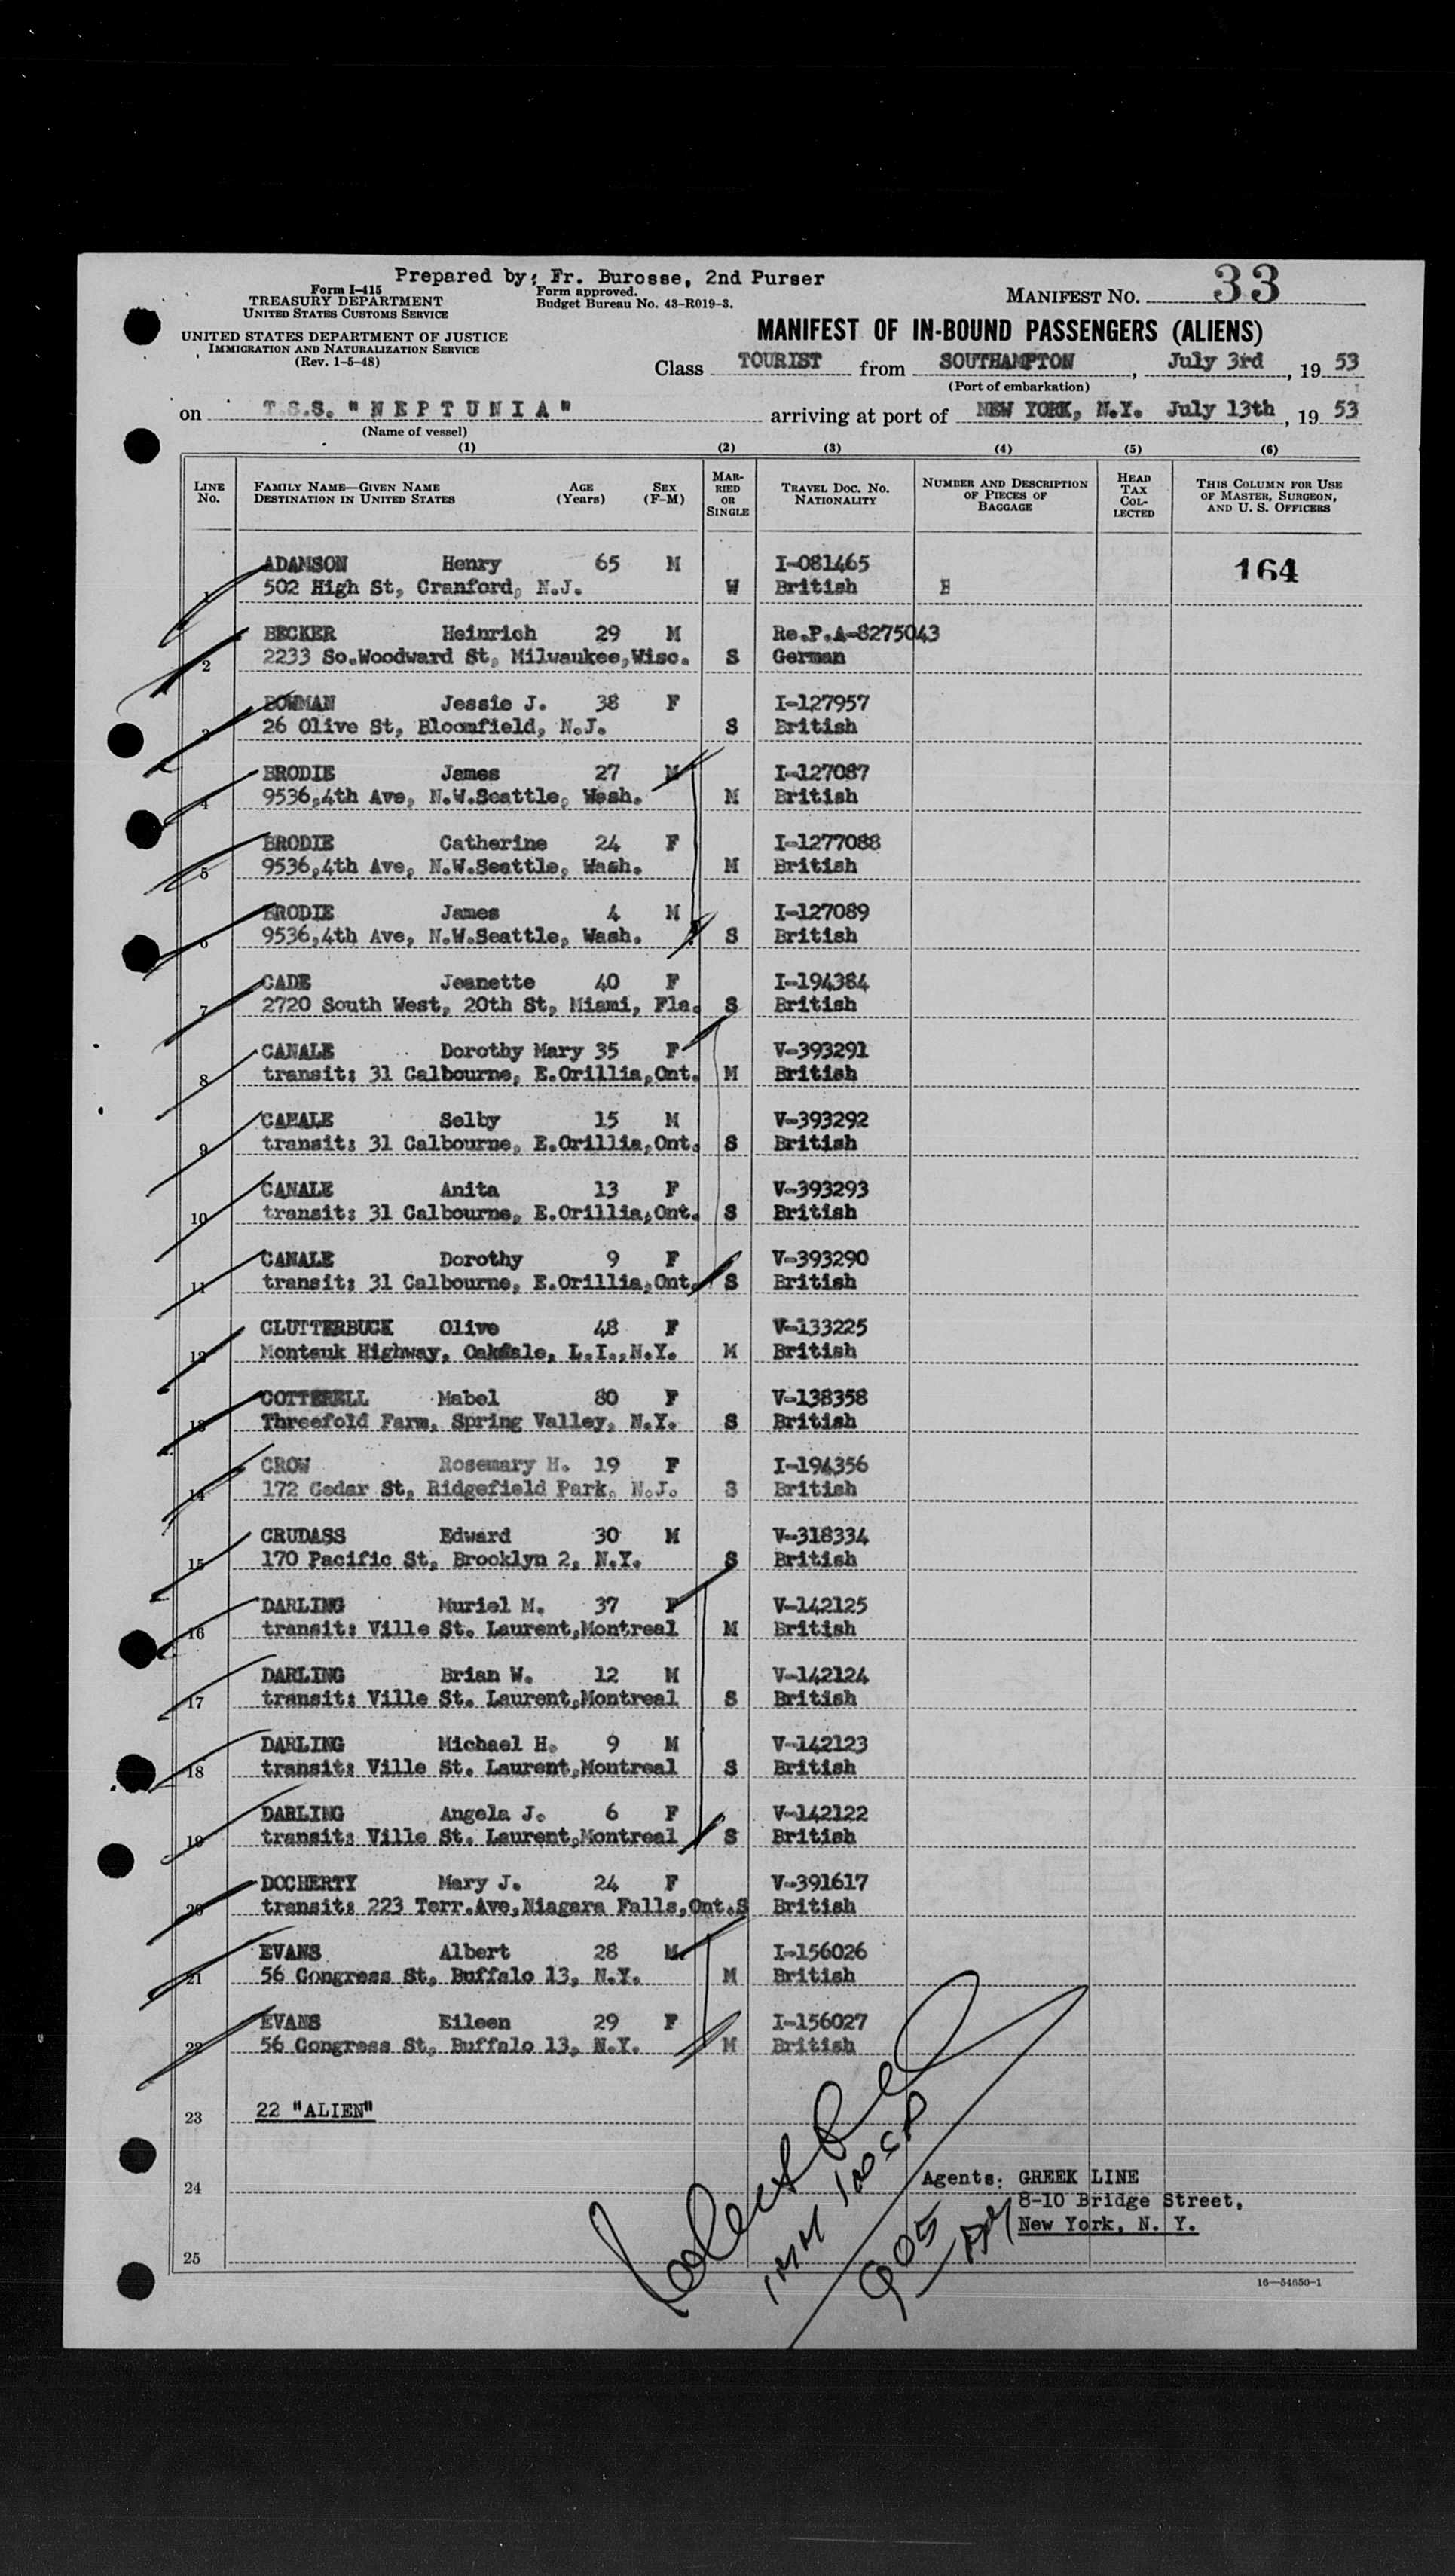 Prepared by: Fr. Burosse, 2nd Purser
Form I-415
TREASURY DEPARTMENT
UNITED STATES CUSTOMS SERVICE
Form approved.
Budget Bureau No. 43-R019-3.
MANIFEST NO. 33
UNITED STATES DEPARTMENT OF JUSTICE
IMMIGRATION AND NATURALIZATION SERVICE
(Rev. 1-5-48)
MANIFEST OF IN-BOUND PASSENGERS (ALIENS)
Class TOURIST from SOUTHAMPTON, July 3rd, 19 53
(Port of embarkation)
on T.S.S. "NEPTUNIA" arriving at port of NEW YORK, N.Y. July 13th, 19 53
(Name of vessel)
(1) (2) (3) (4) (5) (6)
LINE No. FAMILY NAME—GIVEN NAME DESTINATION IN UNITED STATES AGE (Years) SEX (F-M) MARRIED OR SINGLE TRAVEL DOC. NO. NATIONALITY NUMBER AND DESCRIPTION OF PIECES OF BAGGAGE HEAD TAX COLLECTED THIS COLUMN FOR USE OF MASTER, SURGEON, AND U. S. OFFICERS
ADAMSON Henry 65 M I-081465 164
1 502 High St, Cranford, N.J. W British
BECKER Heinrich 29 M Re.P.A-8275043
2 2233 So.Woodward St, Milwaukee,Wisc. S German
BOWMAN Jessie J. 38 F I-127957
3 26 Olive St, Bloomfield, N.J. S British
BRODIE James 27 M I-127087
4 9536,4th Ave, N.W.Seattle, Wash. M British
BRODIE Catherine 24 F I-1277088
5 9536,4th Ave, N.W.Seattle, Wash. M British
BRODIE James 4 M I-127089
6 9536,4th Ave, N.W.Seattle, Wash. S British
CADE Jeanette 40 F I-194384
7 2720 South West, 20th St, Miami, Fla. S British
CANALE Dorothy Mary 35 F V-393291
8 transit: 31 Calbourne, E.Orillia,Ont. M British
CANALE Selby 15 M V-393292
9 transit: 31 Calbourne, E.Orillia,Ont. S British
CANALE Anita 13 F V-393293
10 transit: 31 Calbourne, E.Orillia,Ont. S British
CANALE Dorothy 9 F V-393290
11 transit: 31 Calbourne, E.Orillia,Ont. S British
CLUTTERBUCK Olive 48 F V-133225
12 Montauk Highway, Oakdale, L.I.,N.Y. M British
COTTERELL Mabel 80 F V-138358
13 Threefold Farm, Spring Valley, N.Y. S British
CROW Rosemary H. 19 F I-194356
14 172 Cedar St, Ridgefield Park, N.J. S British
CRUDASS Edward 30 M V-318334
15 170 Pacific St, Brooklyn 2, N.Y. S British
DARLING Muriel M. 37 F V-142125
16 transit: Ville St. Laurent,Montreal M British
DARLING Brian W. 12 M V-142124
17 transit: Ville St. Laurent,Montreal S British
DARLING Michael H. 9 M V-142123
18 transit: Ville St. Laurent,Montreal S British
DARLING Angela J. 6 F V-142122
19 transit: Ville St. Laurent,Montreal S British
DOCHERTY Mary J. 24 F V-391617
20 transit: 223 Terr.Ave,Niagara Falls,Ont.S British
EVANS Albert 28 M I-156026
21 56 Congress St, Buffalo 13, N.Y. M British
EVANS Eileen 29 F I-156027
22 56 Congress St, Buffalo 13, N.Y. M British
23 22 "ALIEN"
IMM INSP
905 AM
24
Agents: GREEK LINE
8-10 Bridge Street,
New York, N. Y.
25
16—54650-1